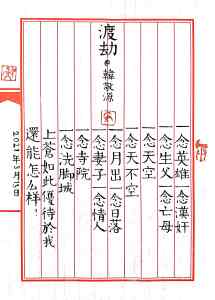 渡劫@韓敬源
一念英雄一念漢奸
一念生父一念亡母
一念天空
一念天不空
一念月出一念日落
一念妻子一念情人
一念寺院
一念洗脚城
上蒼如此優待於我
還能怎么样！
2021年5月15日